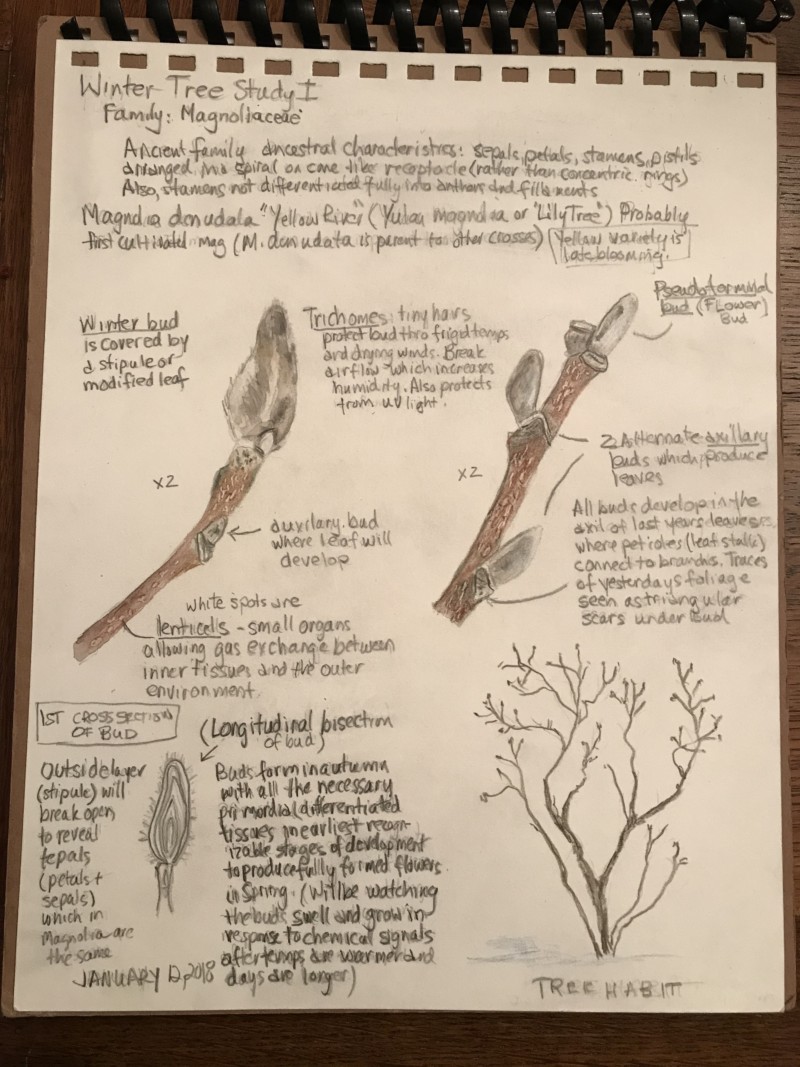 Winter Tree Study I
Family: Magnoliaceae
Ancient family ancestral characteristics: sepals, petals, stamens, pistils
arranged in a spiral on cone like receptacle (rather than concentric rings)
Also, stamens not differentiated fully into anthers and filaments
Magnolia denudata "Yellow River" (Yulan magnolia or "Lily Tree") Probably
first cultivated mag (M. denudata is parent to other crosses) Yellow variety is
late blooming.
Winter bud
is covered by
a stipule or
modified leaf
Trichomes: tiny hairs
protect bud thro frigid temps
and drying winds. Break
airflow which increases
humidity. Also protects
from uv light.
Pseudoterminal
bud (FLower)
Bud
x2
x2
2 Alternate axillary
buds which produce
leaves
auxilary bud
where leaf will
develop
All buds develop in the
axil of last years leaves
where petioles (leaf stalks)
connect to branchis. Traces
of yesterdays foliage
seen as triangular
scars under bud
white spots are
lenticels - small organs
allowing gas exchange between
inner tissues and the outer
environment.
1ST CROSS SECTION
OF BUD
(Longitudinal bisection
of bud)
Outside layer
(stipule) will
break open
to reveal
tepals
(petals +
sepals)
which in
Magnolia are
the same
Buds form in autumn
with all the necessary
primordia (differentiated
tissues in earliest recogn-
izable stages of development
to produce fully formed flowers
in Spring. (Will be watching
the buds swell and grow in
response to chemical signals
after temps are warmer and
days are longer)
JANUARY 12, 2018
TREE HABIT